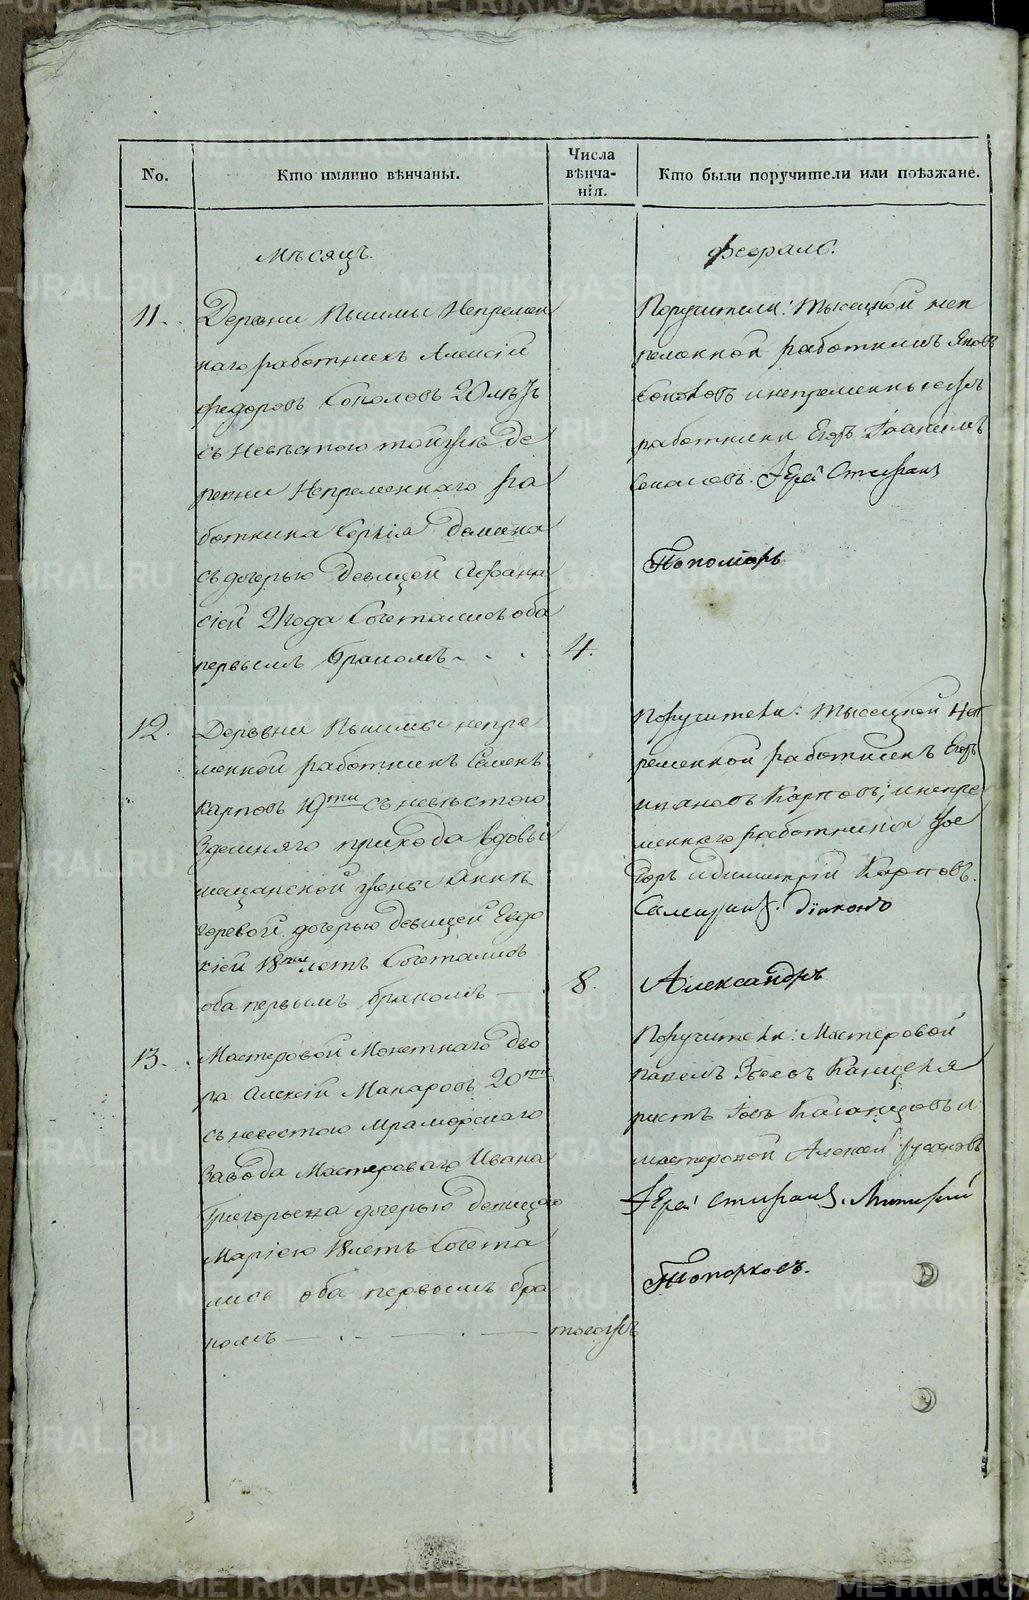 No.
Кто имянно вѣнчаны.
Числа
вѣнча-
нія.
Кто были поручители или поѣзжане.
Мѣсяцъ.
Февраль.
11.
Деревни Пышмы Непремен
наго работникъ Алексій
Федоровъ Соколовъ 20 лѣтъ
съ Невѣстою тойжъ де
ревни Непременнаго ра
ботника Сергія Демина
съ дочерью Девицей Афана
сіей 21 года Сочетались оба
первымъ бракомъ
4.
Поручители: тысецкой неп
ременной работникъ Яковъ
Соколовъ и непременные
работники Егоръ
Соколовъ. Іерей Стефанъ
Пономарь
12.
Деревни Пышмы непре
менной работникъ Семенъ
Карповъ 19ти съ невестою
Здешняго прихода вдовы
мещанской жены Анны
дочерью девицей Евдо
кіей 18ти летъ Сочетались
оба первымъ бракомъ
8.
Поручители: тысецкой неп
ременной работникъ Егоръ
Ивановъ Карповъ, и непре
меннаго работника Фе
доръ и Димитрій Карповъ.
Діаконъ
Александръ
13.
Мастеровой Монетнаго дво
ра Алексій Макаровъ 20ти
съ невестою Мраморскаго
завода Мастероваго Ивана
Григорьева дочерью девицею
Маріею 18 летъ Сочета
лись оба первымъ бра
комъ
тогожъ
Поручители: Мастеровой
Павелъ Зуевъ Канцеля
ристъ Іовъ Казанцовъ и
мастеровой Алексей
Іерей Стефанъ
Топорковъ.
METRIKI.GASO-URAL.RU